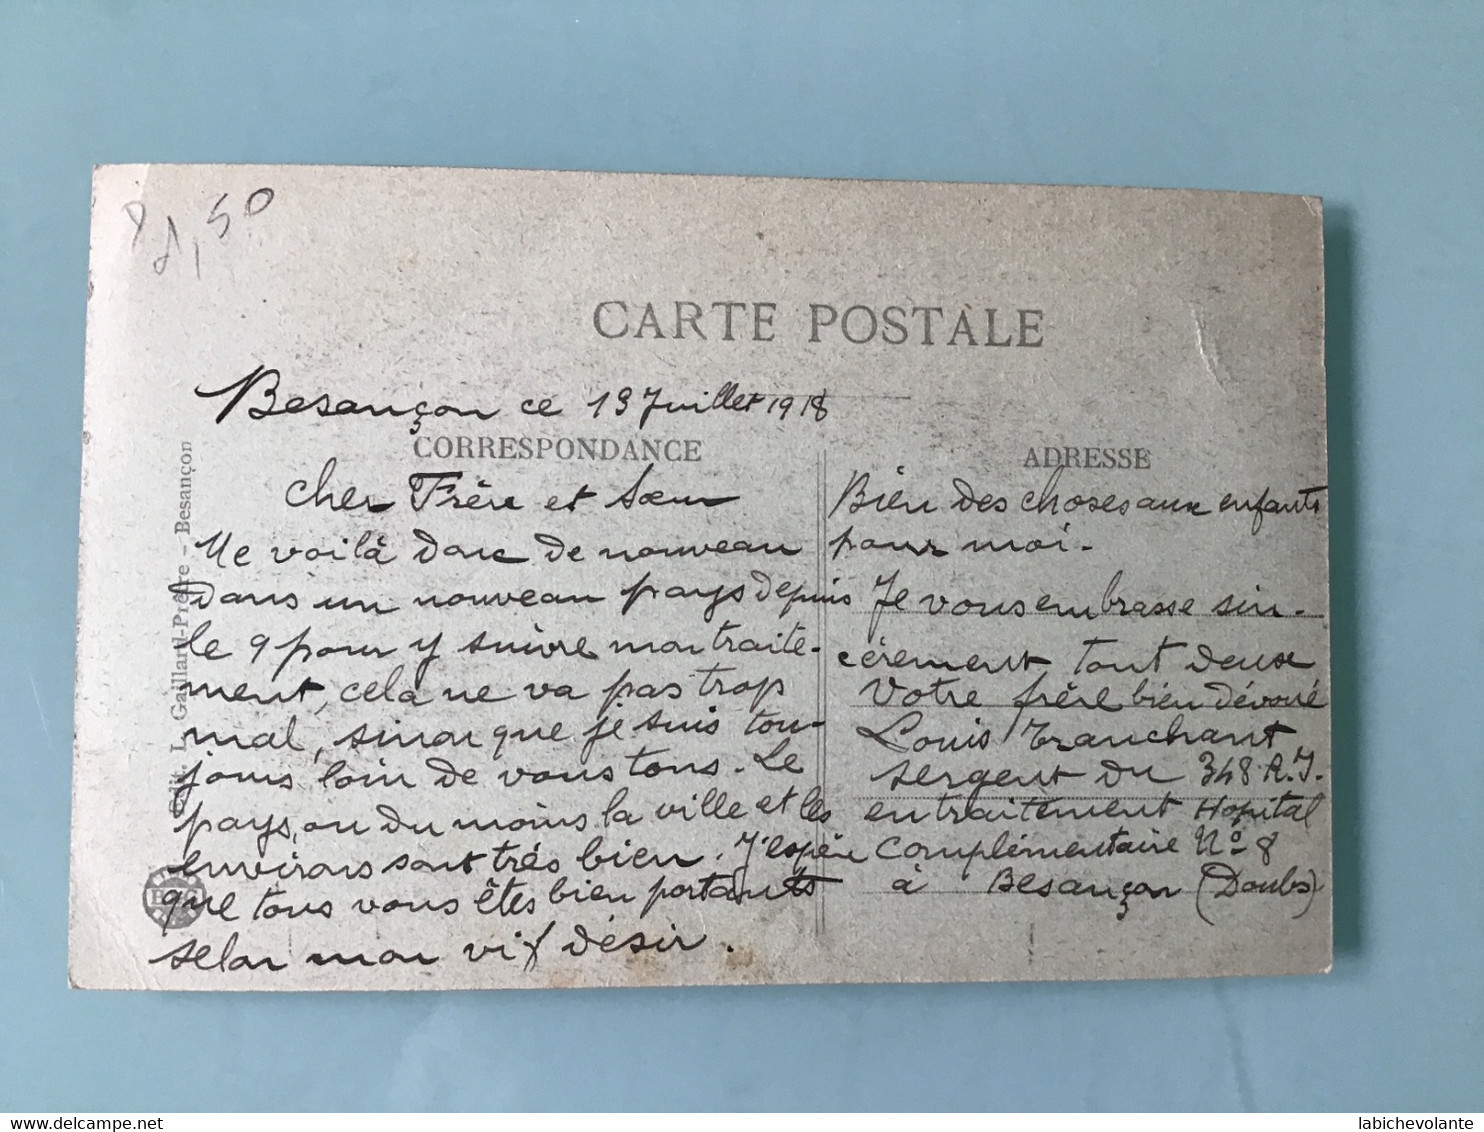 1,50
CARTE POSTALE
Besançon ce 13 Juillet 1918
CORRESPONDANCE
ADRESSE
Cher Frère et Sœur
Me voilà donc de nouveau
dans un nouveau pays depuis
le 9 pour y suivre mon traite-
ment, cela ne va pas trop
mal, sinon que je suis tou-
jours loin de vous tous. Le
pays, ou du moins la ville et les
environs sont très bien. J'espère
que tous vous êtes bien portants
selon mon vif désir.
Bien des choses aux enfants
pour moi.
Je vous embrasse sin-
cèrement tout deux
Votre frère bien dévoué
Louis Tranchant
sergent du 348 R.I.
en traitement Hopital
Complémentaire No 8
à Besançon (Doubs)
L. Gaillard-Prêtre - Besançon
labichevolante